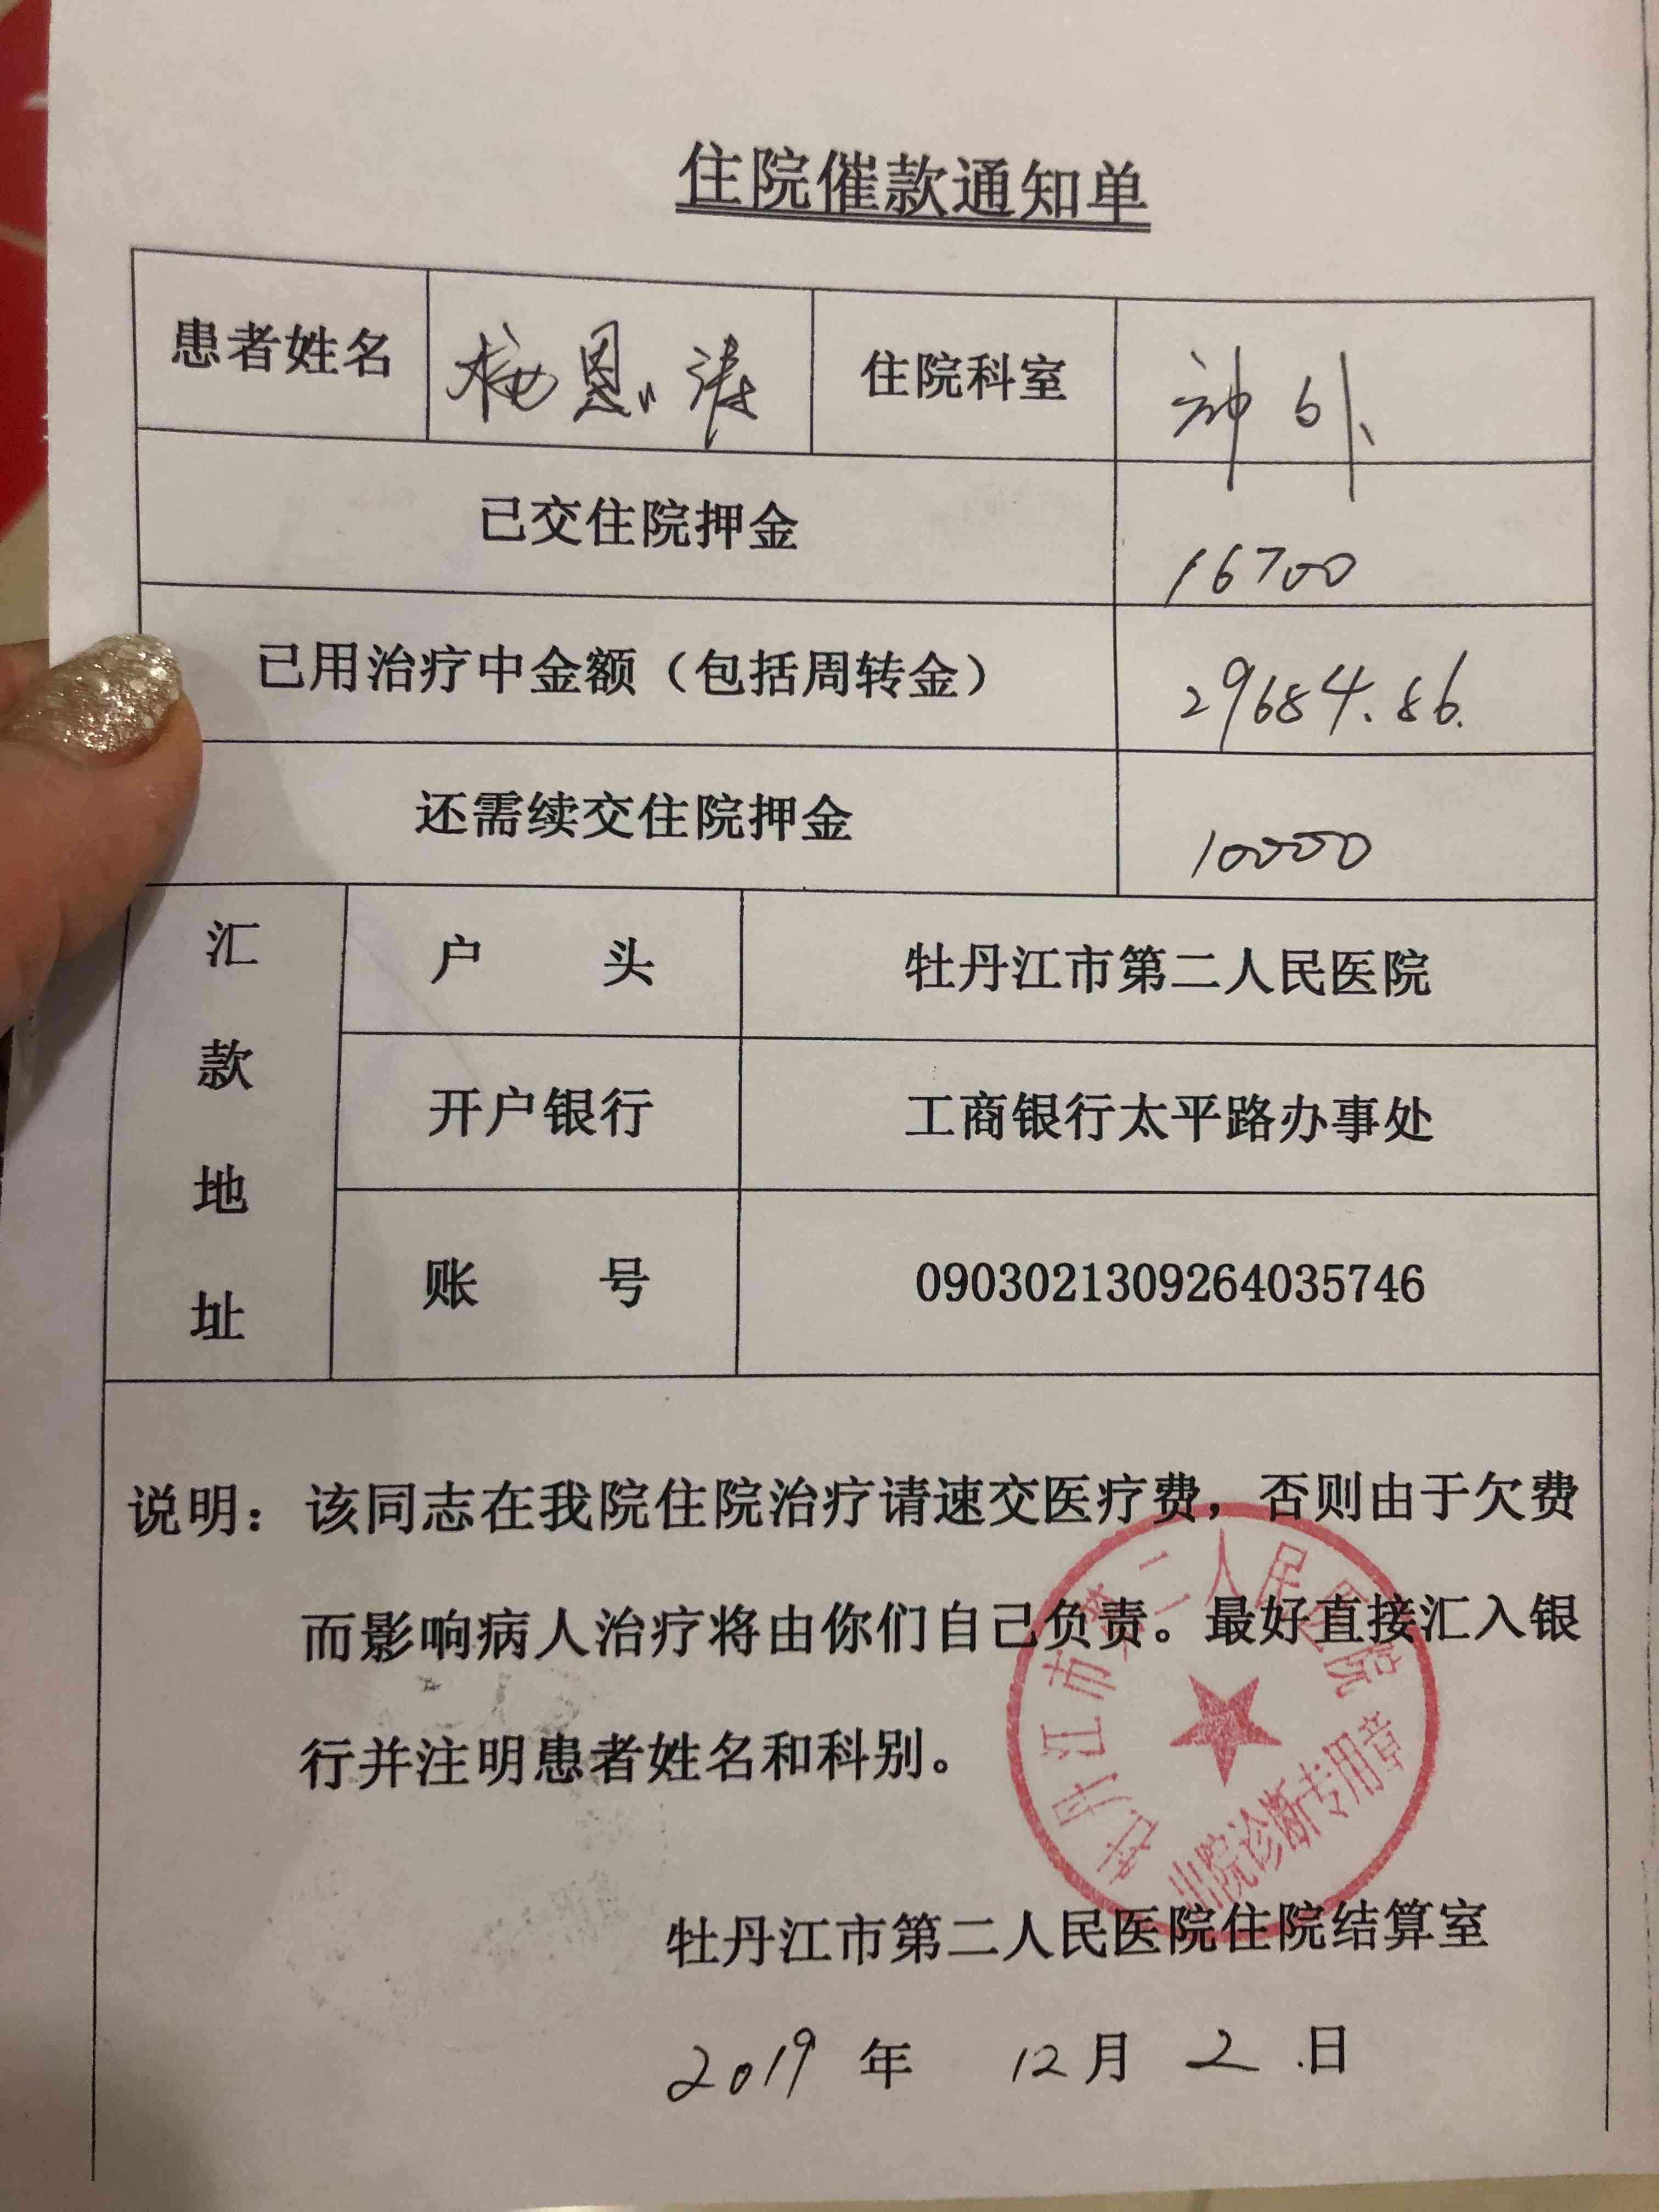 住院催款通知单
患者姓名 恩涛 住院科室 神外
已交住院押金 16700
已用治疗中金额（包括周转金） 29684.86.
还需续交住院押金 10000
汇款地址
户头 牡丹江市第二人民医院
开户银行 工商银行太平路办事处
账号 0903021309264035746
说明：该同志在我院住院治疗请速交医疗费，否则由于欠费
而影响病人治疗将由你们自己负责。最好直接汇入银
行并注明患者姓名和科别。
牡丹江市第二人民医院
出院诊断专用章
牡丹江市第二人民医院住院结算室
2019年 12月 2日